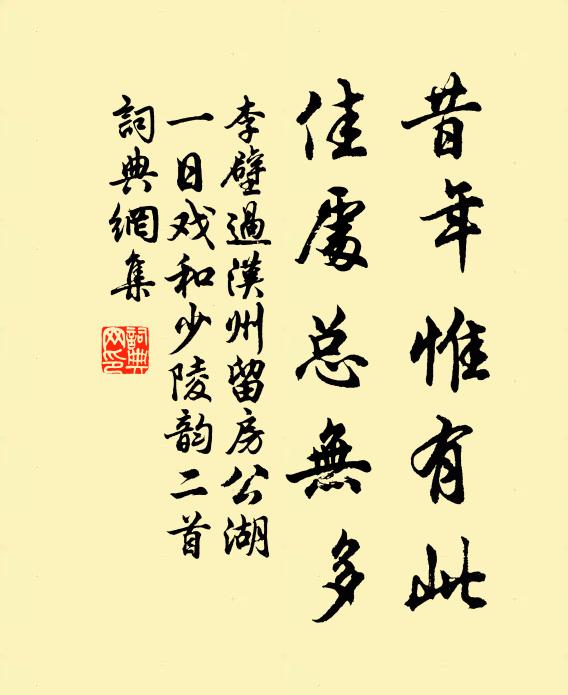 昔年惟有此
佳處总無多
李壁過漢州留房公湖
一日戏和少陵韵二首
詞典網集
詞典网印